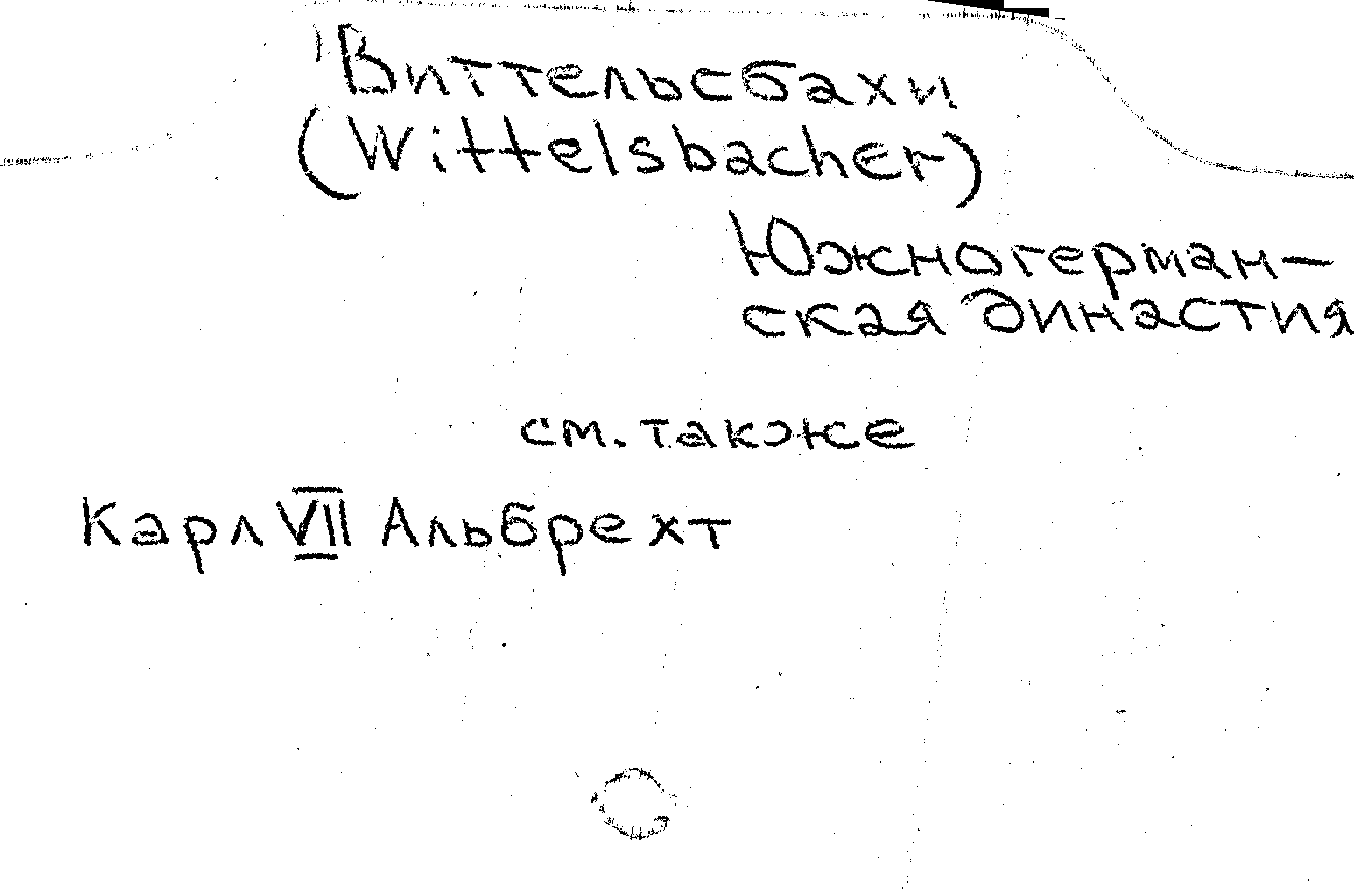 Виттельсбахи
(Wittelsbacher)
Южногерман-
ская династия
см. также
Карл VII Альбрехт